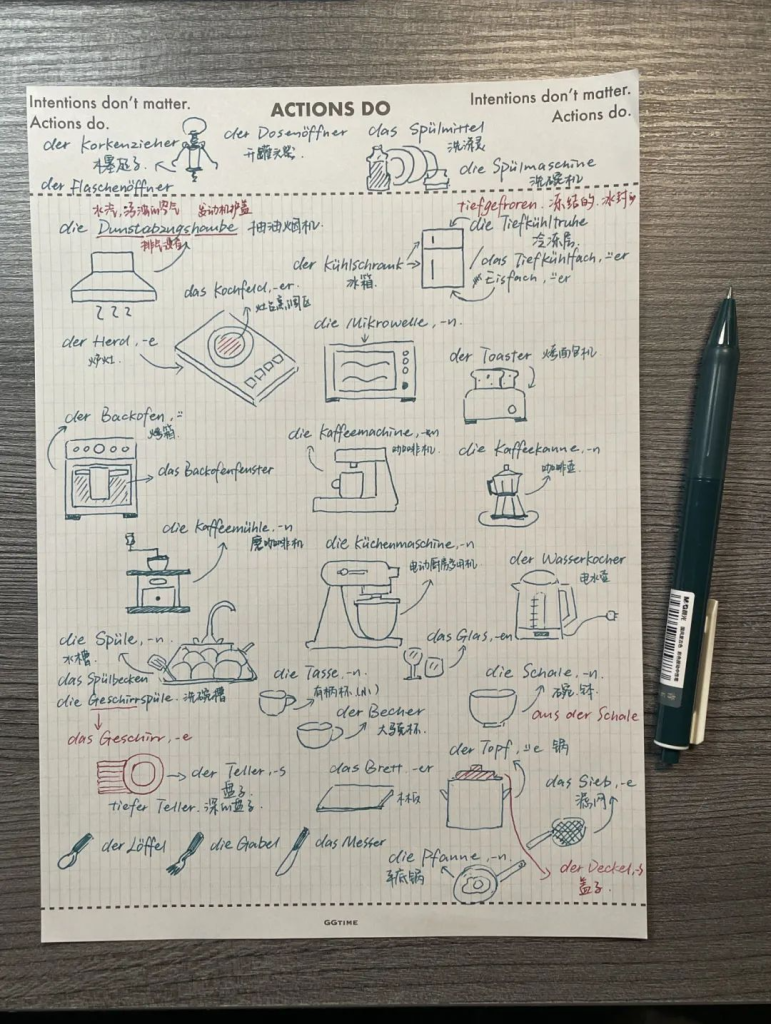 Intentions don't matter.
Actions do.
ACTIONS DO
Intentions don't matter.
Actions do.
der Korkenzieher
der Dosenöffner
开罐头器
das Spülmittel
洗洁灵
die Spülmaschine
洗碗机
der Flaschenöffner
发动机护盖
tiefgefroren. 冻结的. 冰封的
die Dunstabzugshaube 抽油烟机.
die Tiefkühltruhe
冷冻层.
der Kühlschrank
冰箱.
/das Tiefkühlfach, ⸚er
Eisfach, ⸚er
das Kochfeld, -er.
der Herd, -e
炉灶.
die Mikrowelle, -n.
der Toaster 烤面包机
der Backofen, ⸚
烤箱.
das Backofenfenster
die Kaffeemachine, -n
咖啡机.
die Kaffeekanne, -n
咖啡壶
die Kaffeemühle, -n
磨咖啡机
die Küchenmaschine, -n
der Wasserkocher
电水壶
die Spüle, -n.
水槽.
das Spülbecken
die Geschirrspüle. 洗碗槽
das Glas, -en
die Tasse, -n.
有柄杯.(小)
die Schale, -n
碗. 钵.
aus der Schale
der Becher
das Geschirr, -e
der Teller, -s
盘子.
tiefer Teller. 深的盘子.
das Brett. -er
木板
der Topf, ⸚e 锅
das Sieb, -e
漏网
der Löffel
die Gabel
das Messer
die Pfanne, -n.
平底锅
der Deckel, -s
盖子.
GGTIME